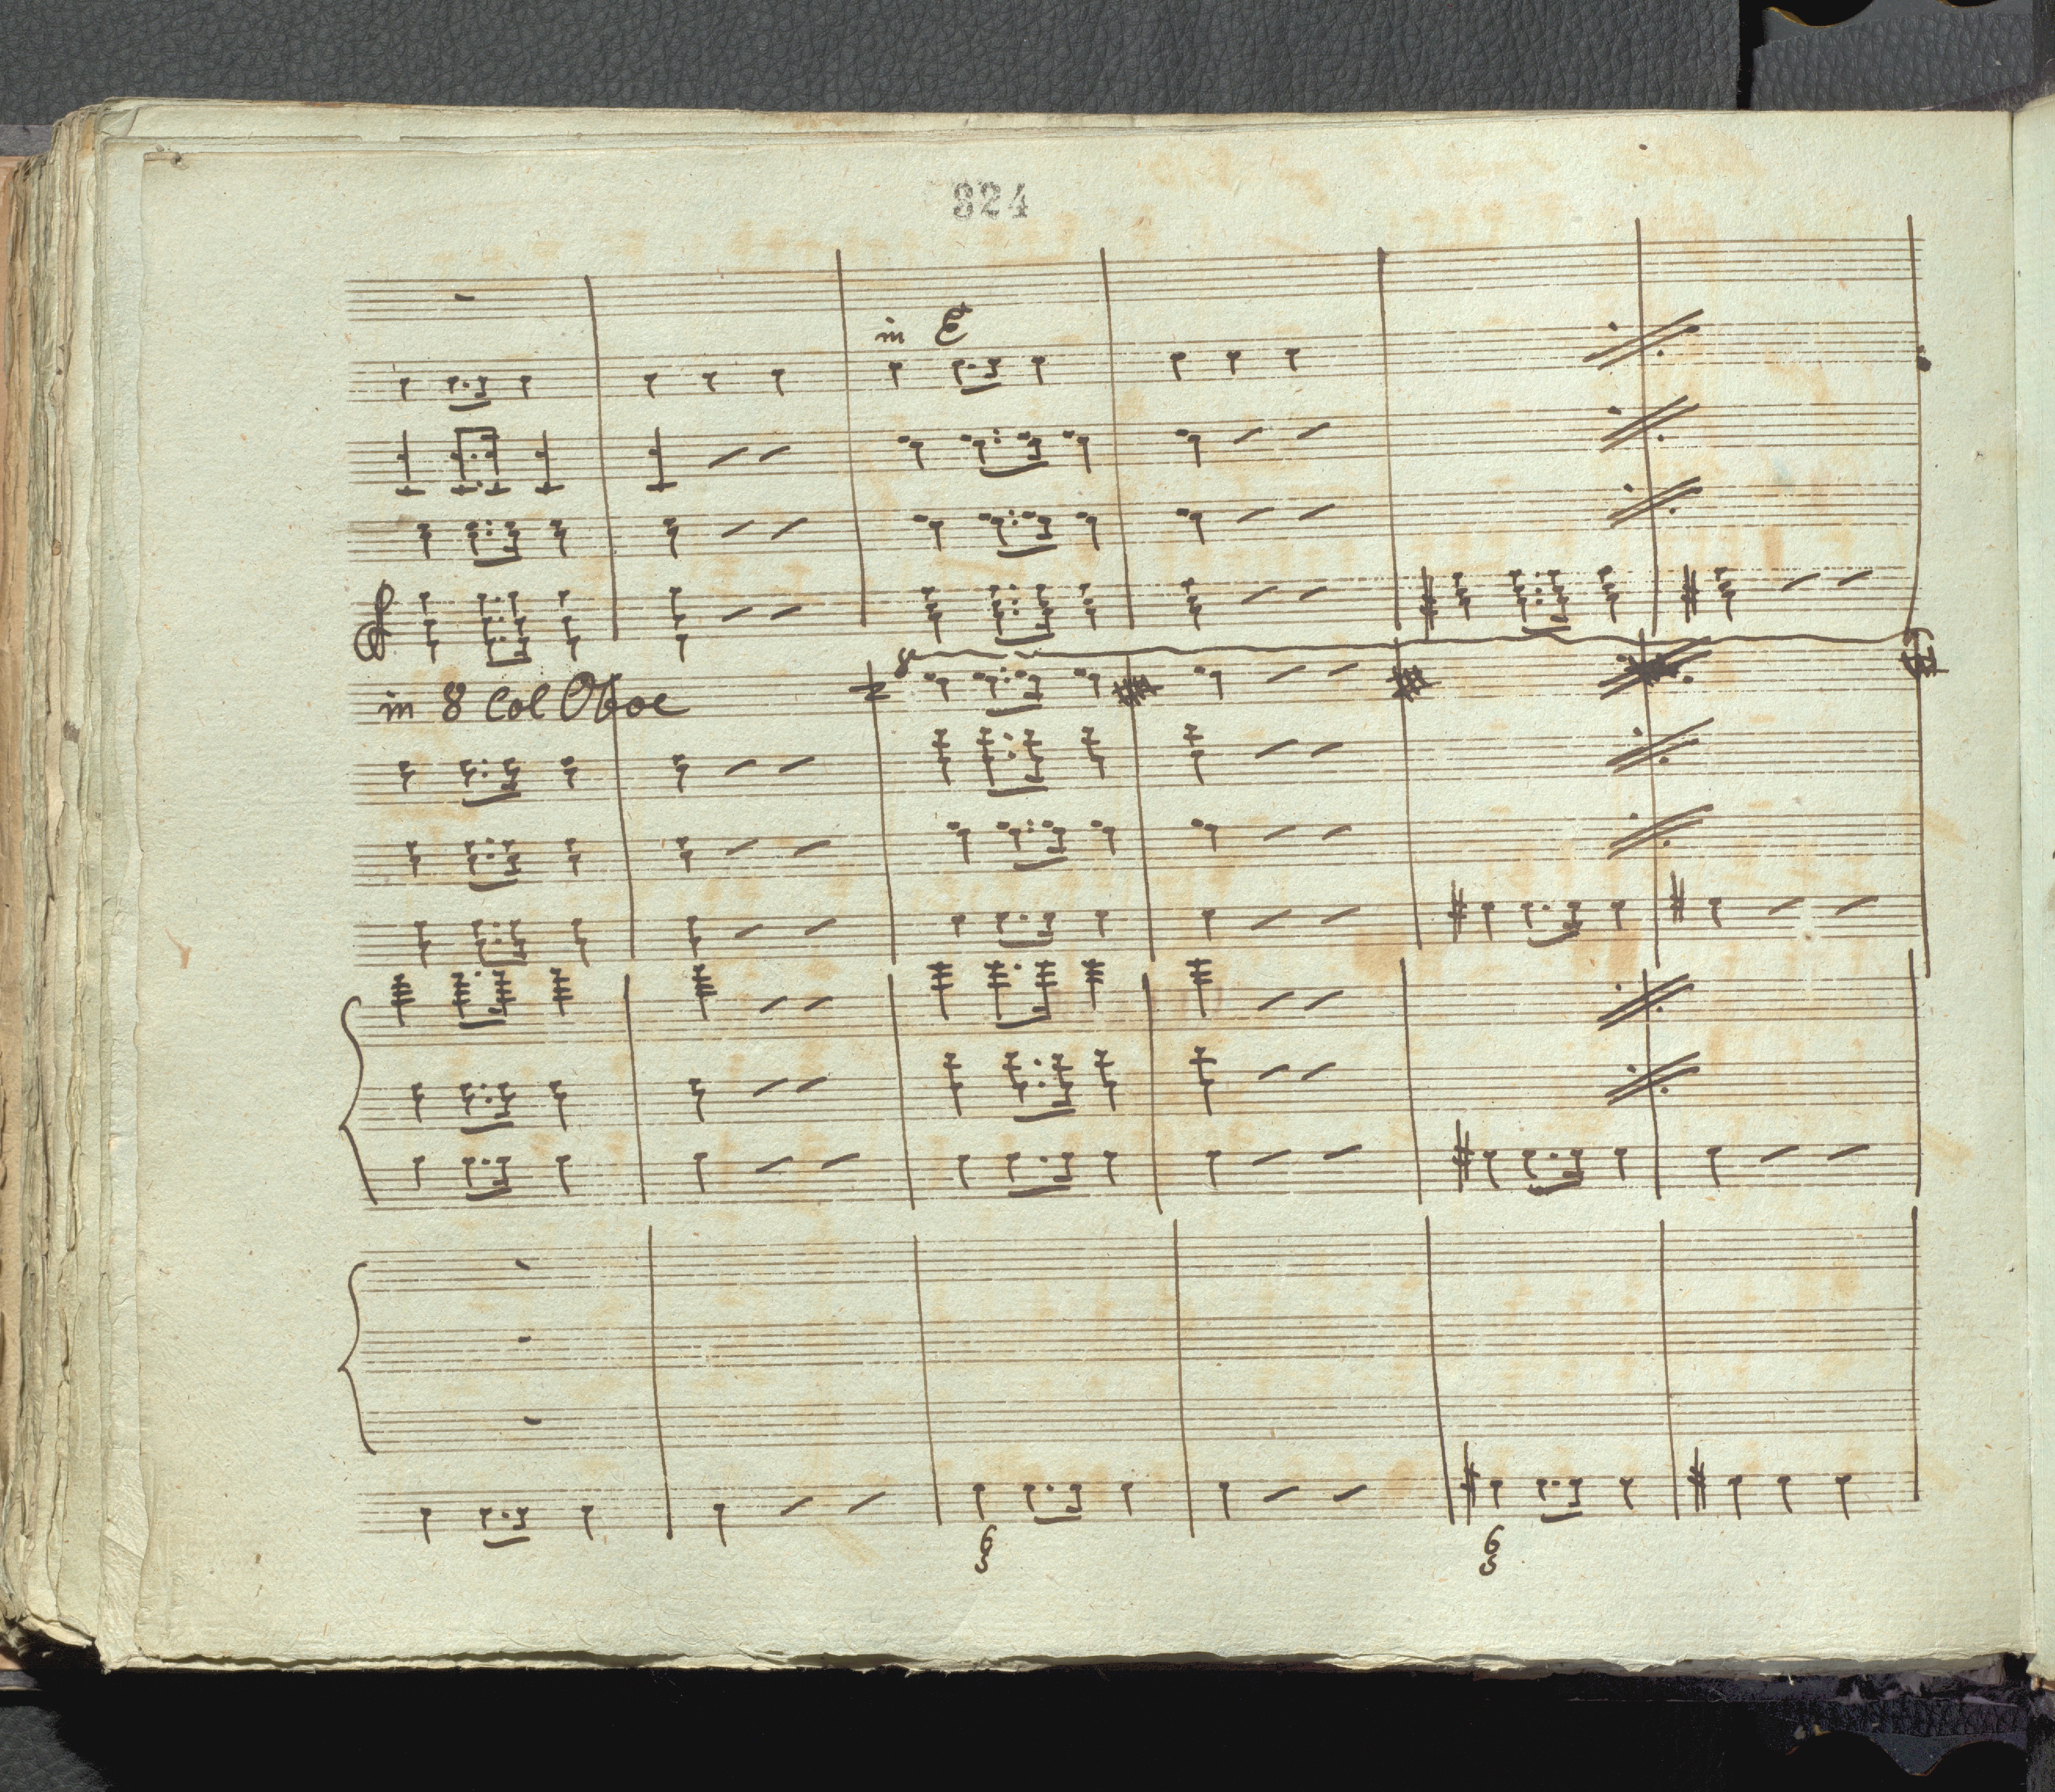 324
in E
8
in 8 col Oboe
6
5
6
5